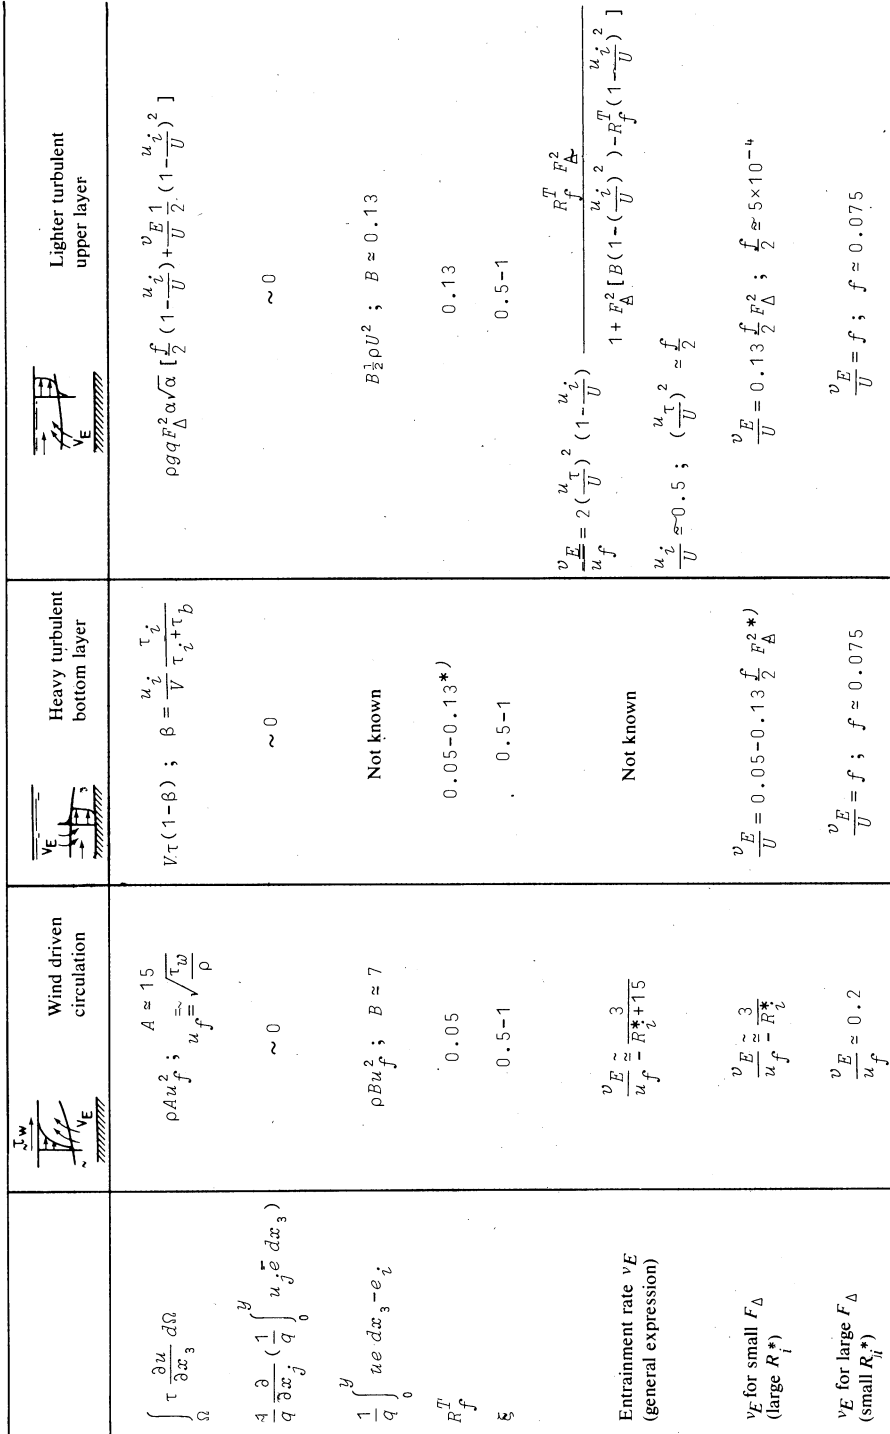 τw
vE
Wind driven
circulation
vE
Heavy turbulent
bottom layer
vE
Lighter turbulent
upper layer
∫Ω τ ∂u/∂x₃ dΩ
ρAu_f² ; A ≃ 15
u_f ≃ √(τ_w/ρ)
V.τ(1-β) ; β = u_i/V τ_i/(τ_i+τ_b)
ρgqF_Δ²α√α [f/2 (1-u_i/U)+v_E/U 1/2 (1-u_i/U)² ]
1/q ∂/∂x_j (1/q ∫₀^y u_j e dx₃)
~0
~0
~0
1/q ∫₀^y ue dx₃-e_i
ρBu_f² ; B ≃ 7
Not known
B½ρU² ; B ≃ 0.13
R_f^T
0.05
0.05-0.13*)
0.13
ξ
0.5-1
0.5-1
0.5-1
Entrainment rate vE
(general expression)
v_E/u_f ≃ 3/(R_i*+15)
Not known
v_E/u_f = 2(u_τ/U)² (1-u_i/U) R_f^T F_Δ²/(1+F_Δ²[B(1-(u_i/U)²)-R_f^T(1-u_i/U)²])
u_i/U ≃0.5 ; (u_τ/U)² ≃ f/2
vE for small F_Δ
(large R_i*)
v_E/u_f ≃ 3/R_i*
v_E/U = 0.05-0.13 f/2 F_Δ² *)
v_E/U = 0.13 f/2 F_Δ² ; f/2 ≃ 5×10⁻⁴
vE for large F_Δ
(small R_i*)
v_E/u_f ≃ 0.2
v_E/U = f ; f ≃ 0.075
v_E/U = f ; f ≃ 0.075